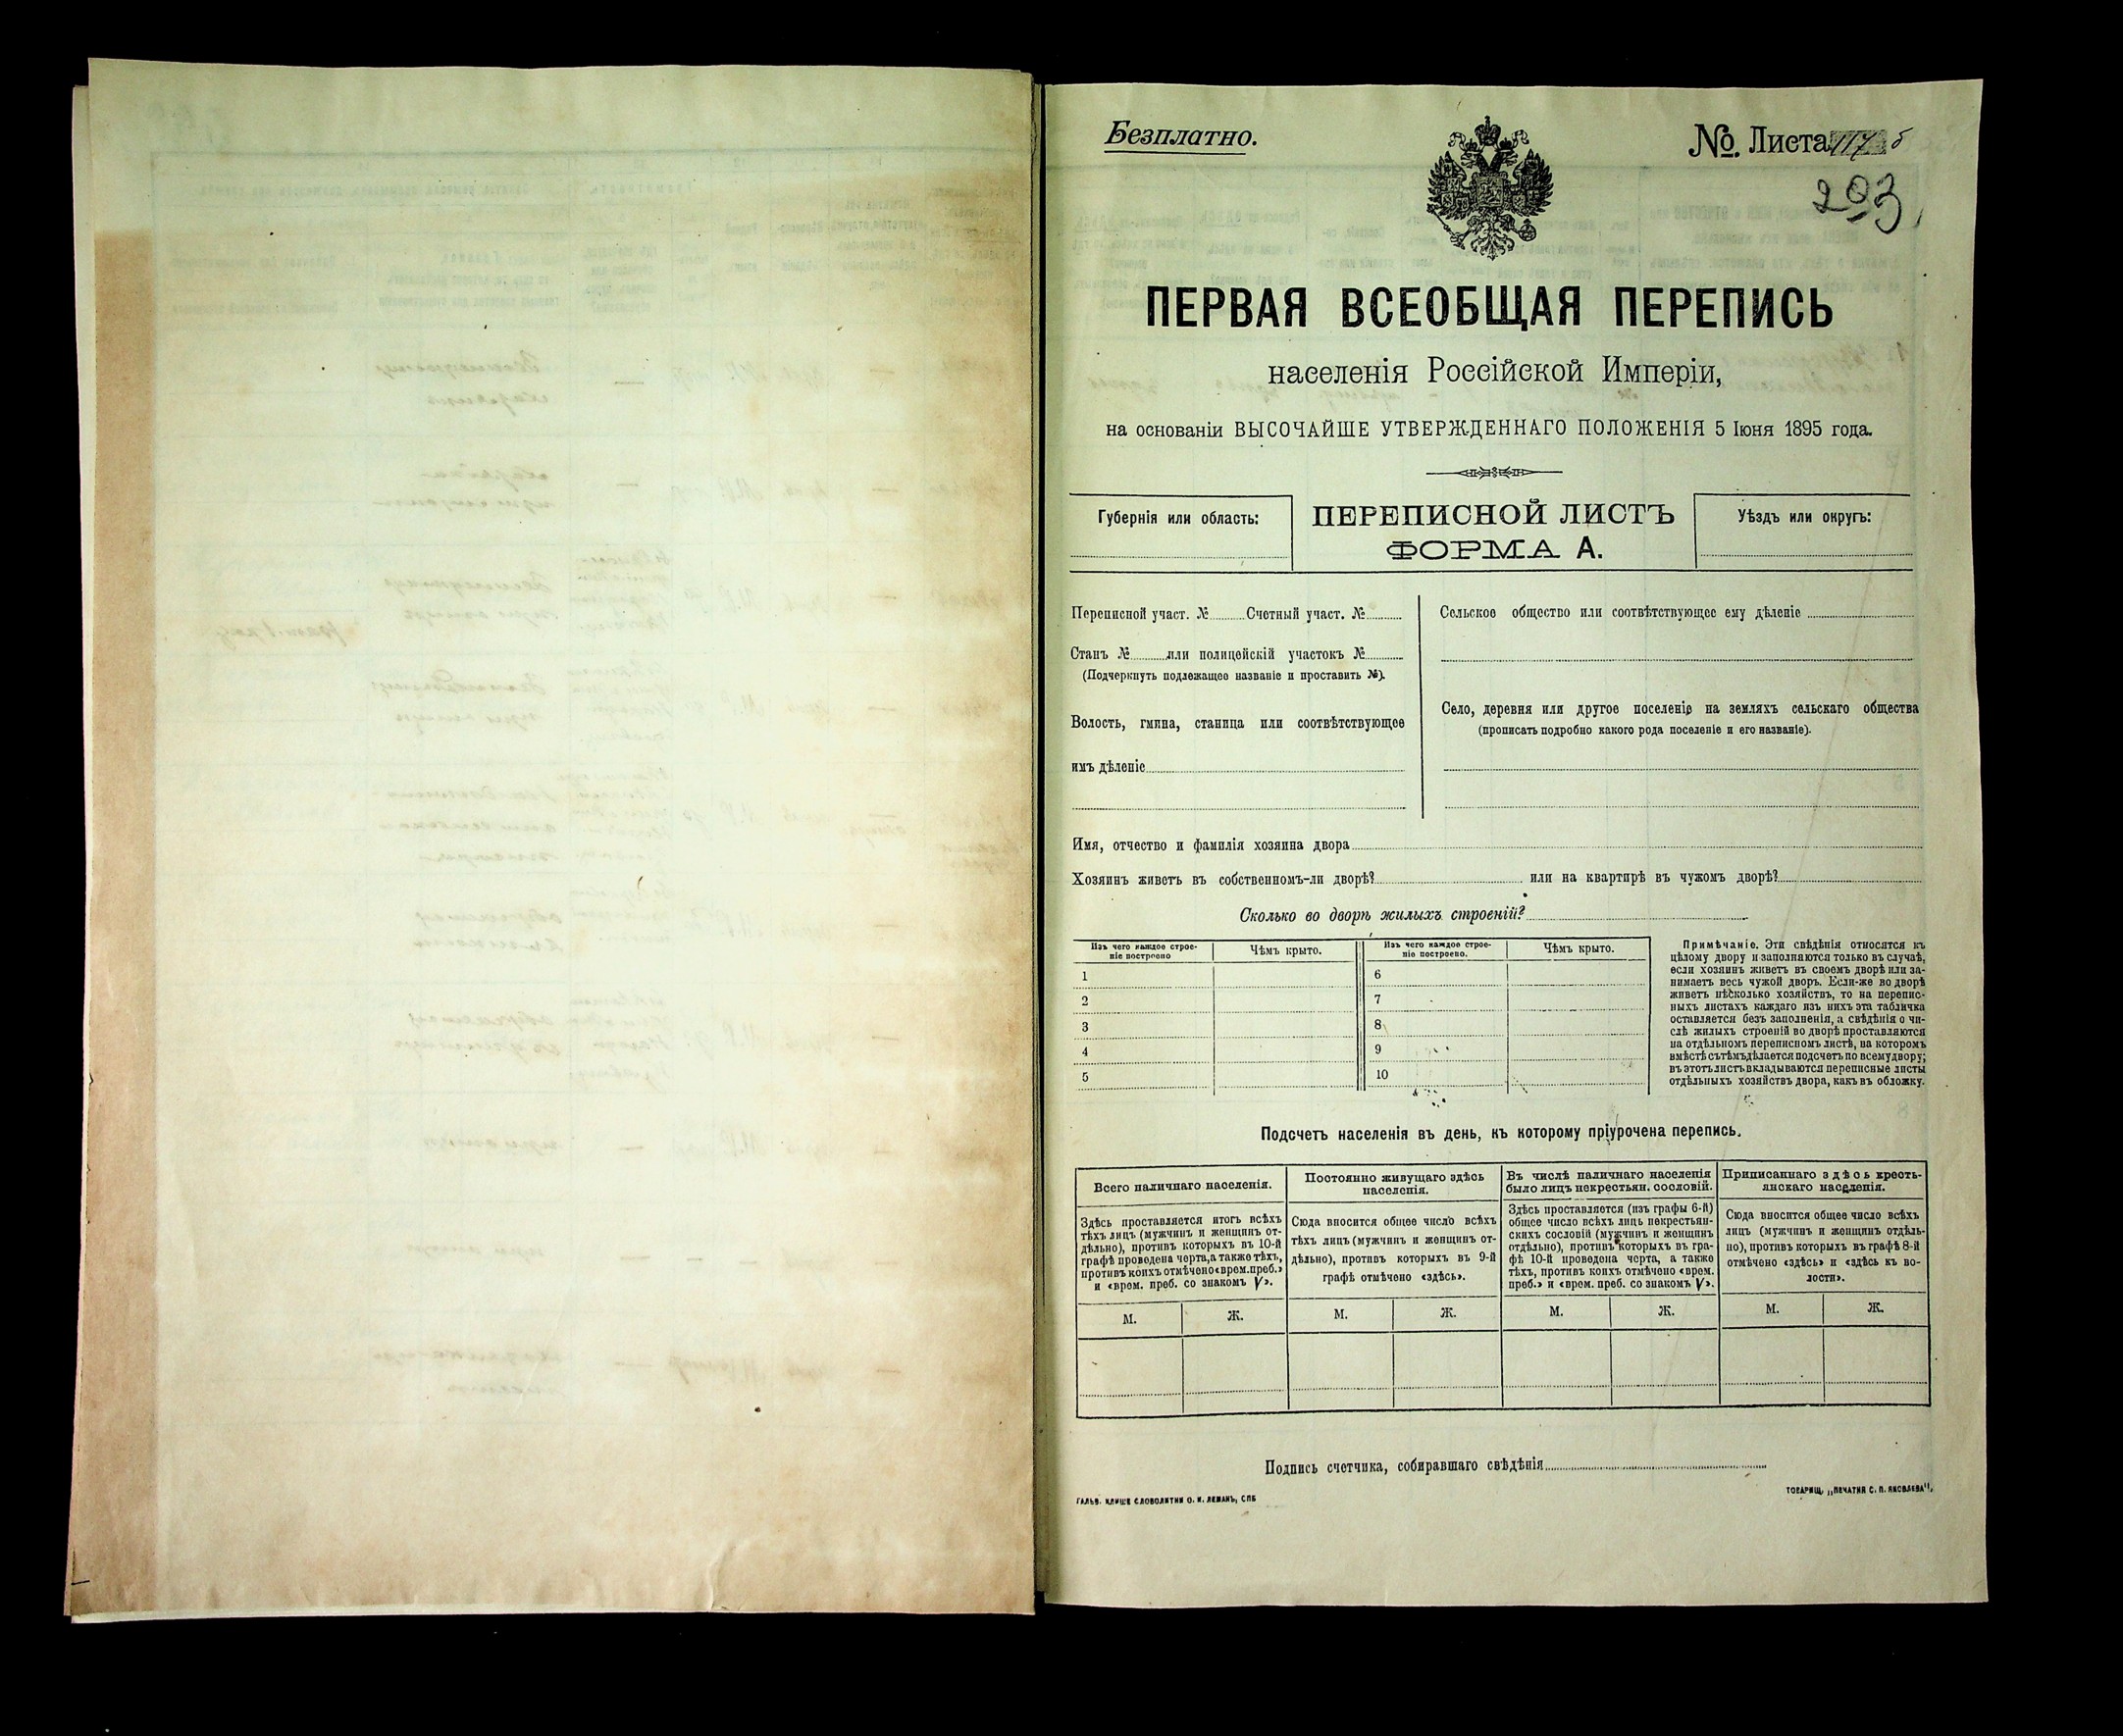 Безплатно.
№. Листа 117 б
203
ПЕРВАЯ ВСЕОБЩАЯ ПЕРЕПИСЬ
населенія Россійской Имперіи,
на основаніи ВЫСОЧАЙШЕ УТВЕРЖДЕННАГО ПОЛОЖЕНІЯ 5 Іюня 1895 года.
Губернія или область:
ПЕРЕПИСНОЙ ЛИСТЪ
ФОРМА А.
Уѣздъ или округъ:
Переписной участ. № Счетный участ. №
Станъ № или полицейскій участокъ №
(Подчеркнуть подлежащее названіе и проставить №).
Волость, гмина, станица или соотвѣтствующее
имъ дѣленіе
Сельское общество или соотвѣтствующее ему дѣленіе
Село, деревня или другое поселеніе на земляхъ сельскаго общества
(прописать подробно какого рода поселеніе и его названіе).
Имя, отчество и фамилія хозяина двора
Хозяинъ живетъ въ собственномъ-ли дворѣ? или на квартирѣ въ чужомъ дворѣ?
Сколько во дворѣ жилыхъ строеній?
Изъ чего каждое строе-
ніе построено
Чѣмъ крыто.
Изъ чего каждое строе-
ніе построено.
Чѣмъ крыто.
1
2
3
4
5
6
7
8
9
10
Примѣчаніе. Эти свѣдѣнія относятся къ
цѣлому двору и заполняются только въ случаѣ,
если хозяинъ живетъ въ своемъ дворѣ или за-
нимаетъ весь чужой дворъ. Если-же во дворѣ
живетъ нѣсколько хозяйствъ, то на перепис-
ныхъ листахъ каждаго изъ нихъ эта табличка
оставляется безъ заполненія, а свѣдѣнія о чи-
слѣ жилыхъ строеній во дворѣ проставляются
на отдѣльномъ переписномъ листѣ, на которомъ
вмѣстѣ съ тѣмъ дѣлается подсчетъ по всему двору;
въ этотъ листъ вкладываются переписные листы
отдѣльныхъ хозяйствъ двора, какъ въ обложку.
Подсчетъ населенія въ день, къ которому пріурочена перепись.
Всего наличнаго населенія.
Здѣсь проставляется итогъ всѣхъ
тѣхъ лицъ (мужчинъ и женщинъ от-
дѣльно), противъ которыхъ въ 10-й
графѣ проведена черта, а также тѣхъ,
противъ коихъ отмѣчено «врем. преб.»
и «врем. преб. со знакомъ V».
М.
Ж.
Постоянно живущаго здѣсь
населенія.
Сюда вносится общее число всѣхъ
тѣхъ лицъ (мужчинъ и женщинъ от-
дѣльно), противъ которыхъ въ 9-й
графѣ отмѣчено «здѣсь».
М.
Ж.
Въ числѣ наличнаго населенія
было лицъ некрестьян. сословій.
Здѣсь проставляется (изъ графы 6-й)
общее число всѣхъ лицъ некрестьян-
скихъ сословій (мужчинъ и женщинъ
отдѣльно), противъ которыхъ въ гра-
фѣ 10-й проведена черта, а также
тѣхъ, противъ коихъ отмѣчено «врем.
преб.» и «врем. преб. со знакомъ V».
М.
Ж.
Приписаннаго здѣсь кресть-
янскаго населенія.
Сюда вносится общее число всѣхъ
лицъ (мужчинъ и женщинъ отдѣль-
но), противъ которыхъ въ графѣ 8-й
отмѣчено «здѣсь» и «здѣсь къ во-
лости».
М.
Ж.
Подпись счетчика, собиравшаго свѣдѣнія
ГАЛЬВ. КЛИШЕ СЛОВОЛИТНИ О. И. ЛЕМАНЪ, СПБ
ТОВАРИЩ. „ПЕЧАТНЯ С. П. ЯКОВЛЕВА",